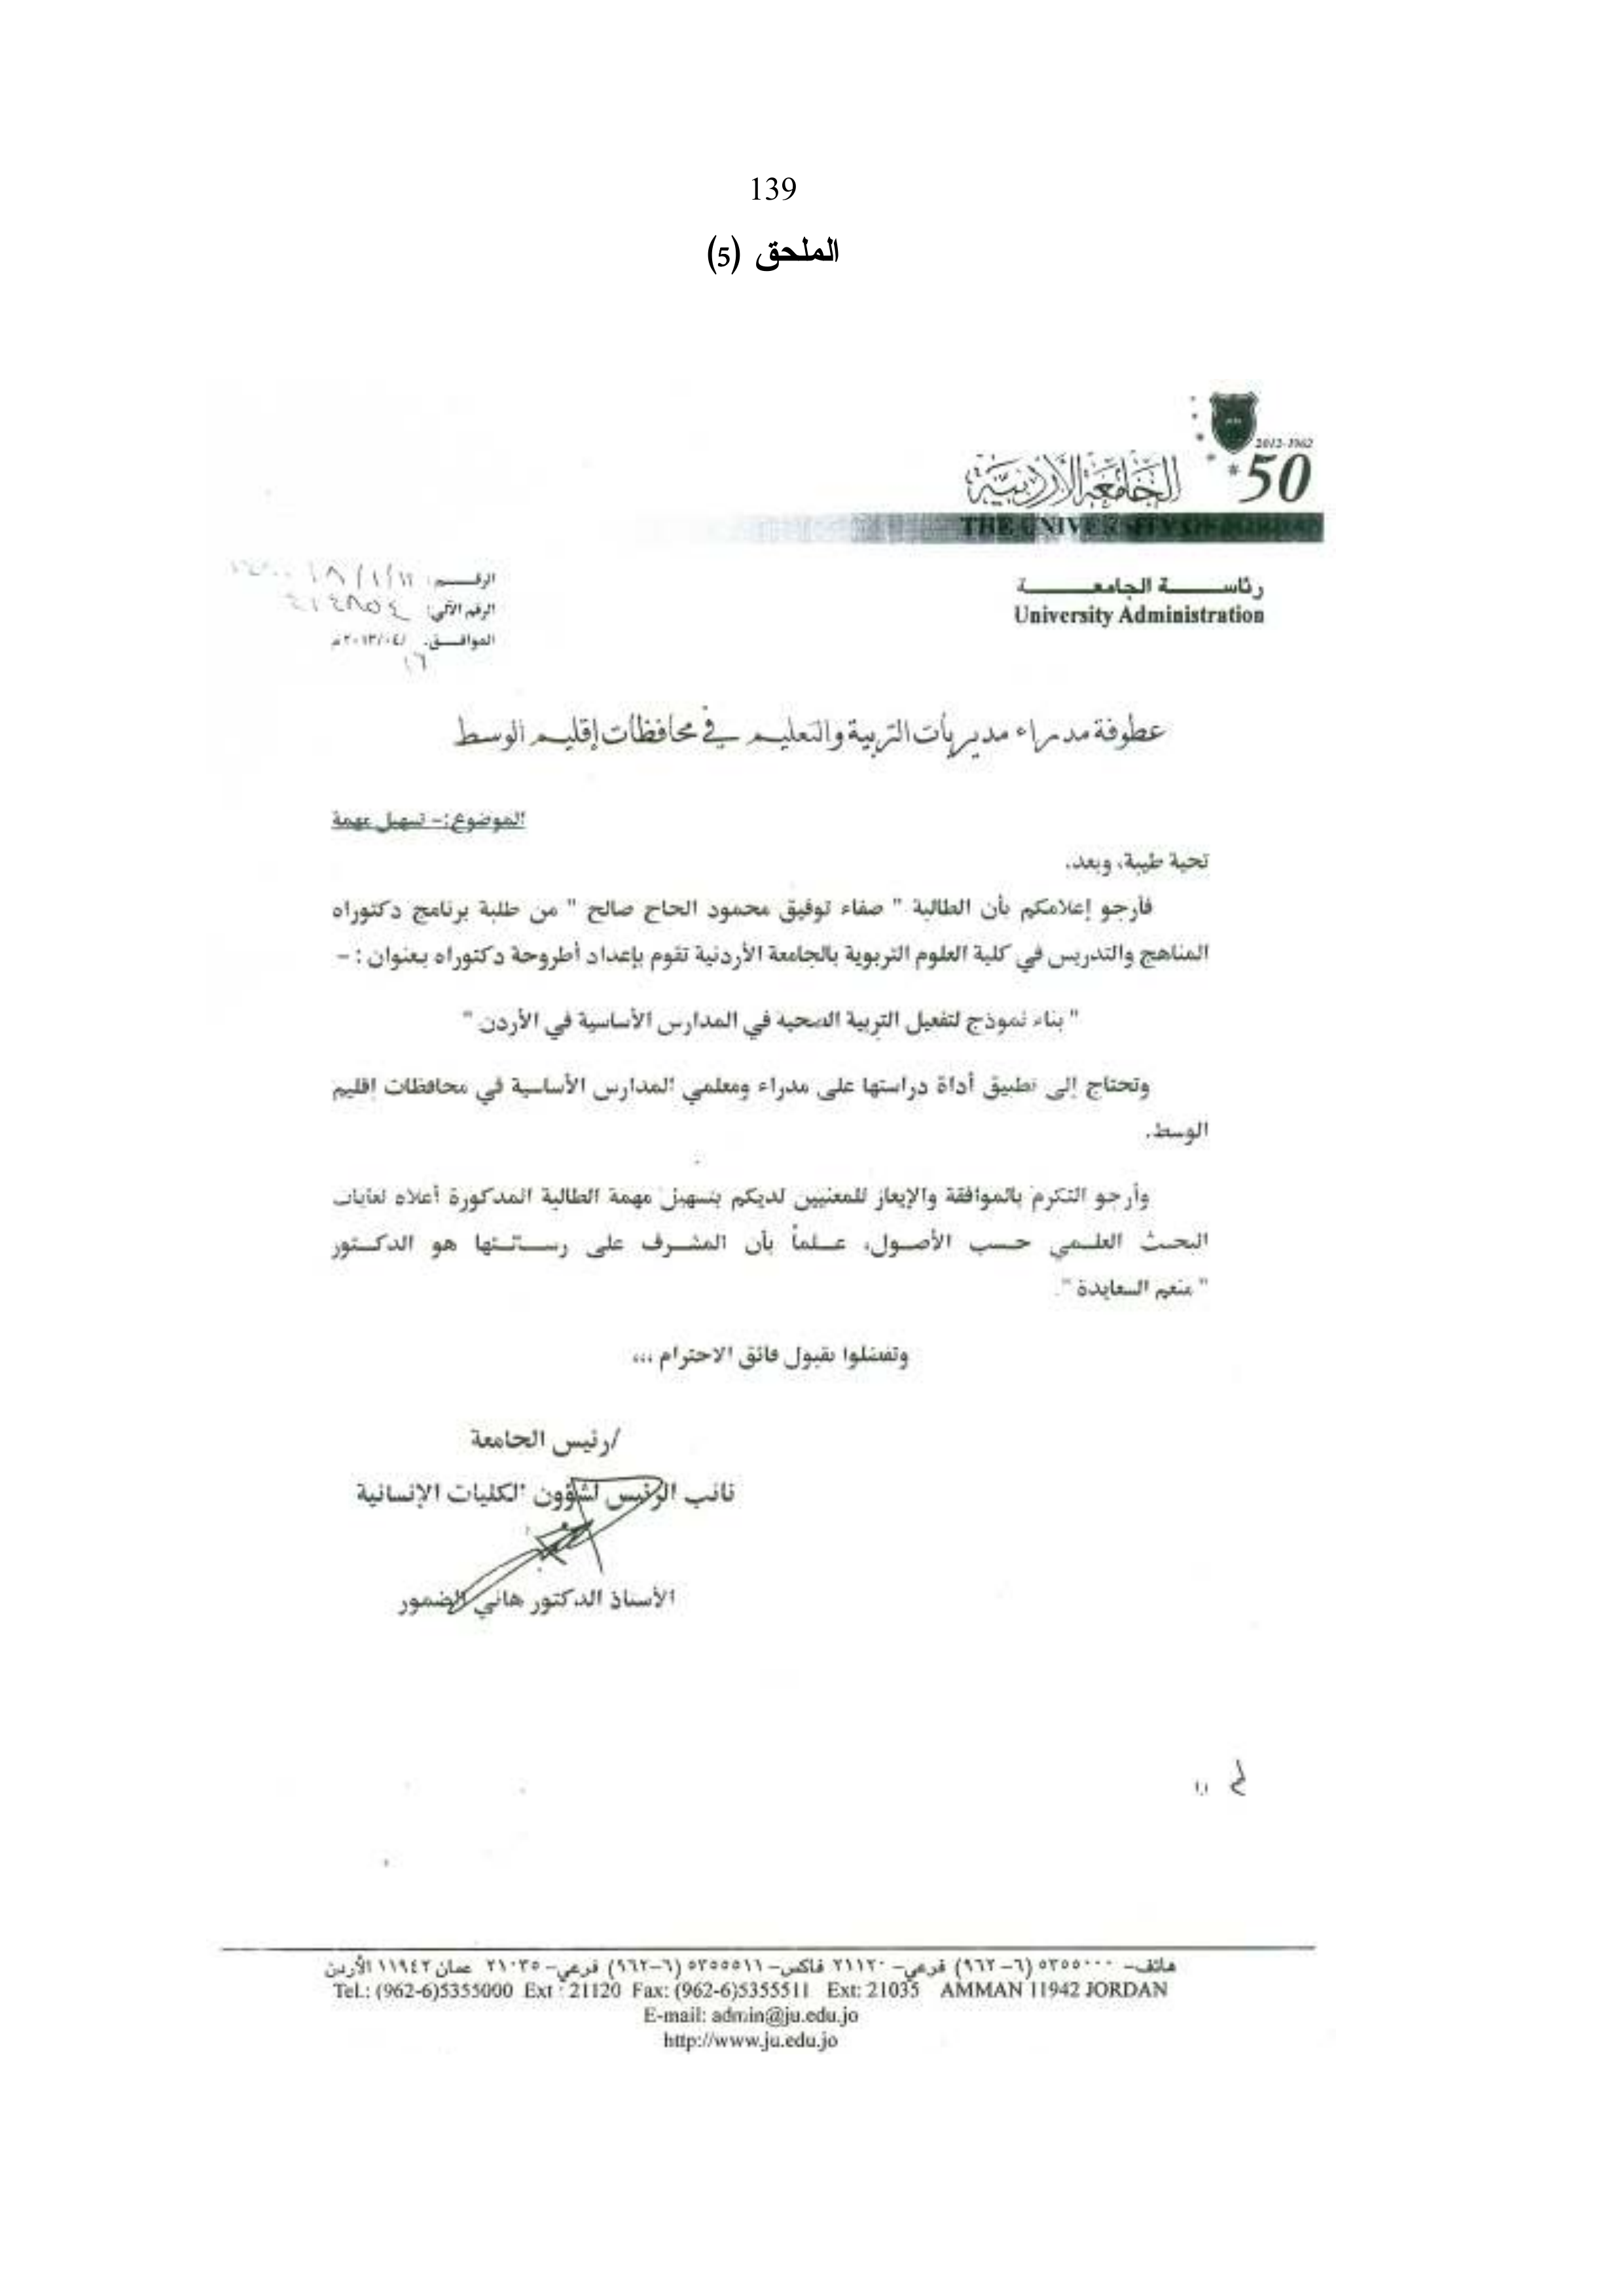 139
الملحق (5)
2012-1962
50
الجامعة الأردنية
THE UNIVERSITY OF JORDAN
رئاسة الجامعة
University Administration
الرقم: ١/١١/٨
الرقم الآلي:
الموافق: /٢٠١٣/٠٤م
١٦
عطوفة مدراء مديريات التربية والتعليم في محافظات إقليم الوسط
الموضوع:- تسهيل مهمة
تحية طيبة، وبعد،
فأرجو إعلامكم بأن الطالبة " صفاء توفيق محمود الحاج صالح " من طلبة برنامج دكتوراه
المناهج والتدريس في كلية العلوم التربوية بالجامعة الأردنية تقوم بإعداد أطروحة دكتوراه بعنوان : -
" بناء نموذج لتفعيل التربية الصحية في المدارس الأساسية في الأردن "
وتحتاج إلى تطبيق أداة دراستها على مدراء ومعلمي المدارس الأساسية في محافظات اقليم
الوسط.
وأرجو التكرم بالموافقة والإيعاز للمعنيين لديكم بتسهيل مهمة الطالبة المذكورة أعلاه لغايات
البحث العلمي حسب الأصول، علماً بأن المشرف على رسالتها هو الدكتور
" منعم السعايدة ".
وتفضلوا بقبول فائق الاحترام ،،،
/رئيس الجامعة
نائب الرئيس لشؤون الكليات الإنسانية
الأستاذ الدكتور هاني الضمور
هاتف- ٥٣٥٥٠٠٠ (٦-٩٦٢) فرعي- ٢١١٢٠ فاكس- ٥٣٥٥٥١١ (٦-٩٦٢) فرعي- ٢١٠٣٥ عمان ١١٩٤٢ الأردن
Tel.: (962-6)5355000 Ext : 21120 Fax: (962-6)5355511 Ext: 21035 AMMAN 11942 JORDAN
E-mail: admin@ju.edu.jo
http://www.ju.edu.jo